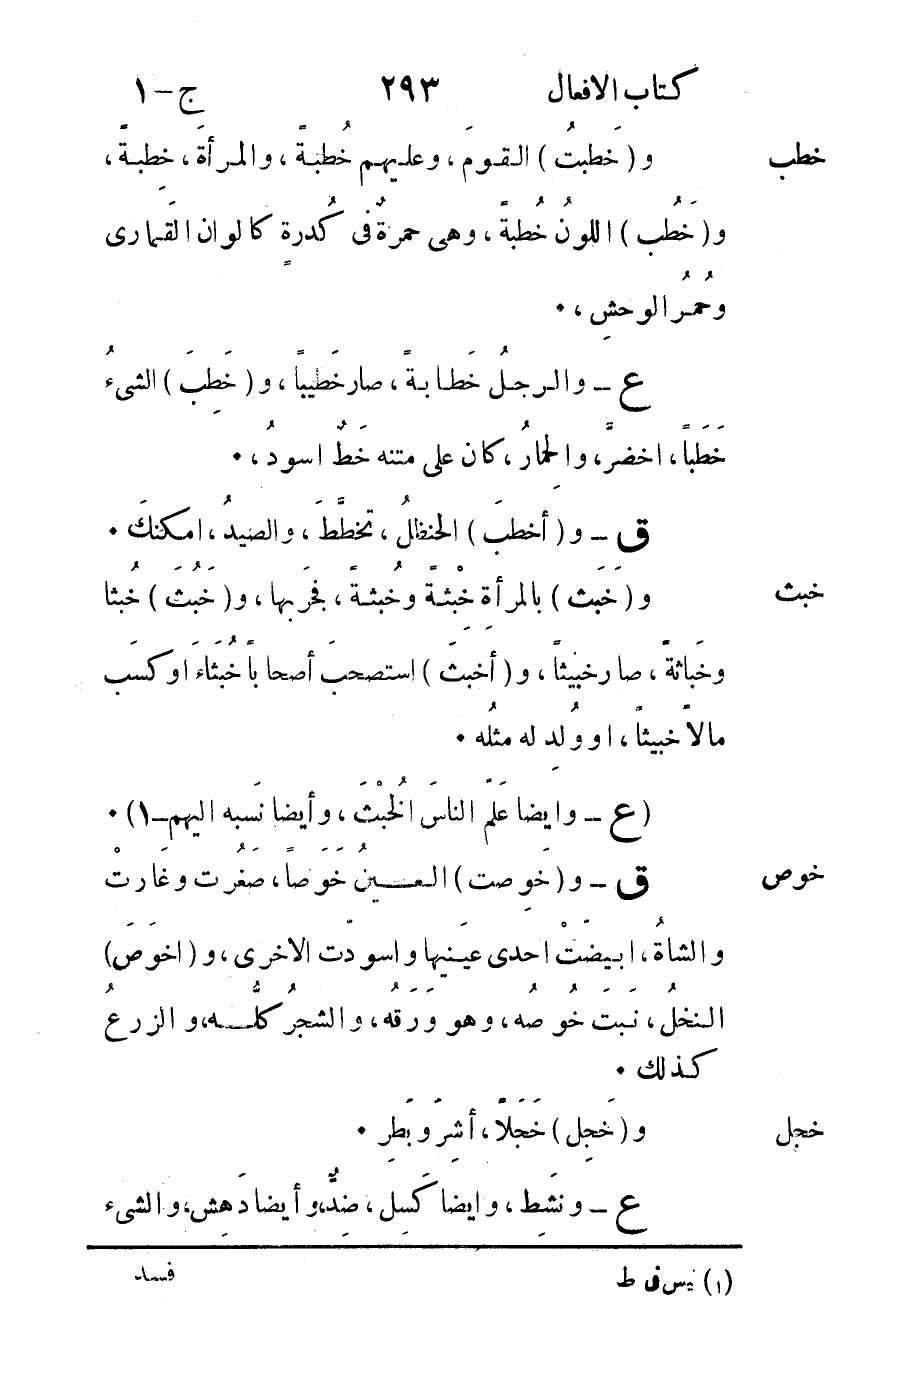 كتاب الافعال ٢٩٣ ج-١
خطب و (خَطبتُ) القومَ، وعليهم خُطبةً، والمرأةَ، خِطبةً،
و(خَطُب) اللونُ خُطبةً، وهى حمرةٌ فى كُدرةٍ كالوان القَمارى
وحُمُر الوحشِ، •
ع ــ والرجلُ خَطابةً، صار خَطيبًا، و(خَطِبَ) الشىءُ
خَطَباً، اخضرَّ، والحِمارُ، كان على متنه خَطٌ اسودُ، •
ق ــ و (أخطبَ) الحنظلُ، تخطَّطَ، والصيدُ، امكنكَ •
خبث و (خَبَث) بالمرأةِ خِبْثةً وخُبثةً، فجَرَ بها، و(خَبُثَ) خُبثا
وخَباثةً، صار خبيثاً، و(أخبثَ) استصحبَ أصحاباً خُبَثاءَ اوكسَب
مالاً خبيثاً، او وُلِد له مثلُه •
(ع ــ وايضا علّم الناسَ الخُبْثَ، وأيضا نَسبه اليهم-١) •
خوص ق ــ و(خَوِصت) العــينُ خَوَصاً، صَغُرت وغَارتْ
والشاةُ، ابيضّتْ احدى عينيها واسودّت الاخرى، و(اخوَصَ)
النخلُ، نَبت خُوصُه، وهو وَرَقُه، والشجرُ كُلُّــه، والزرعُ
كذلك •
خجل و(خَجِل) خَجَلاً، أشِرَ وبَطِر •
ع ــ ونَشِط، وايضا كَسِل، ضِدٌّ، وأيضا دَهِش، والشىء
(١) ليس فى ط فسد